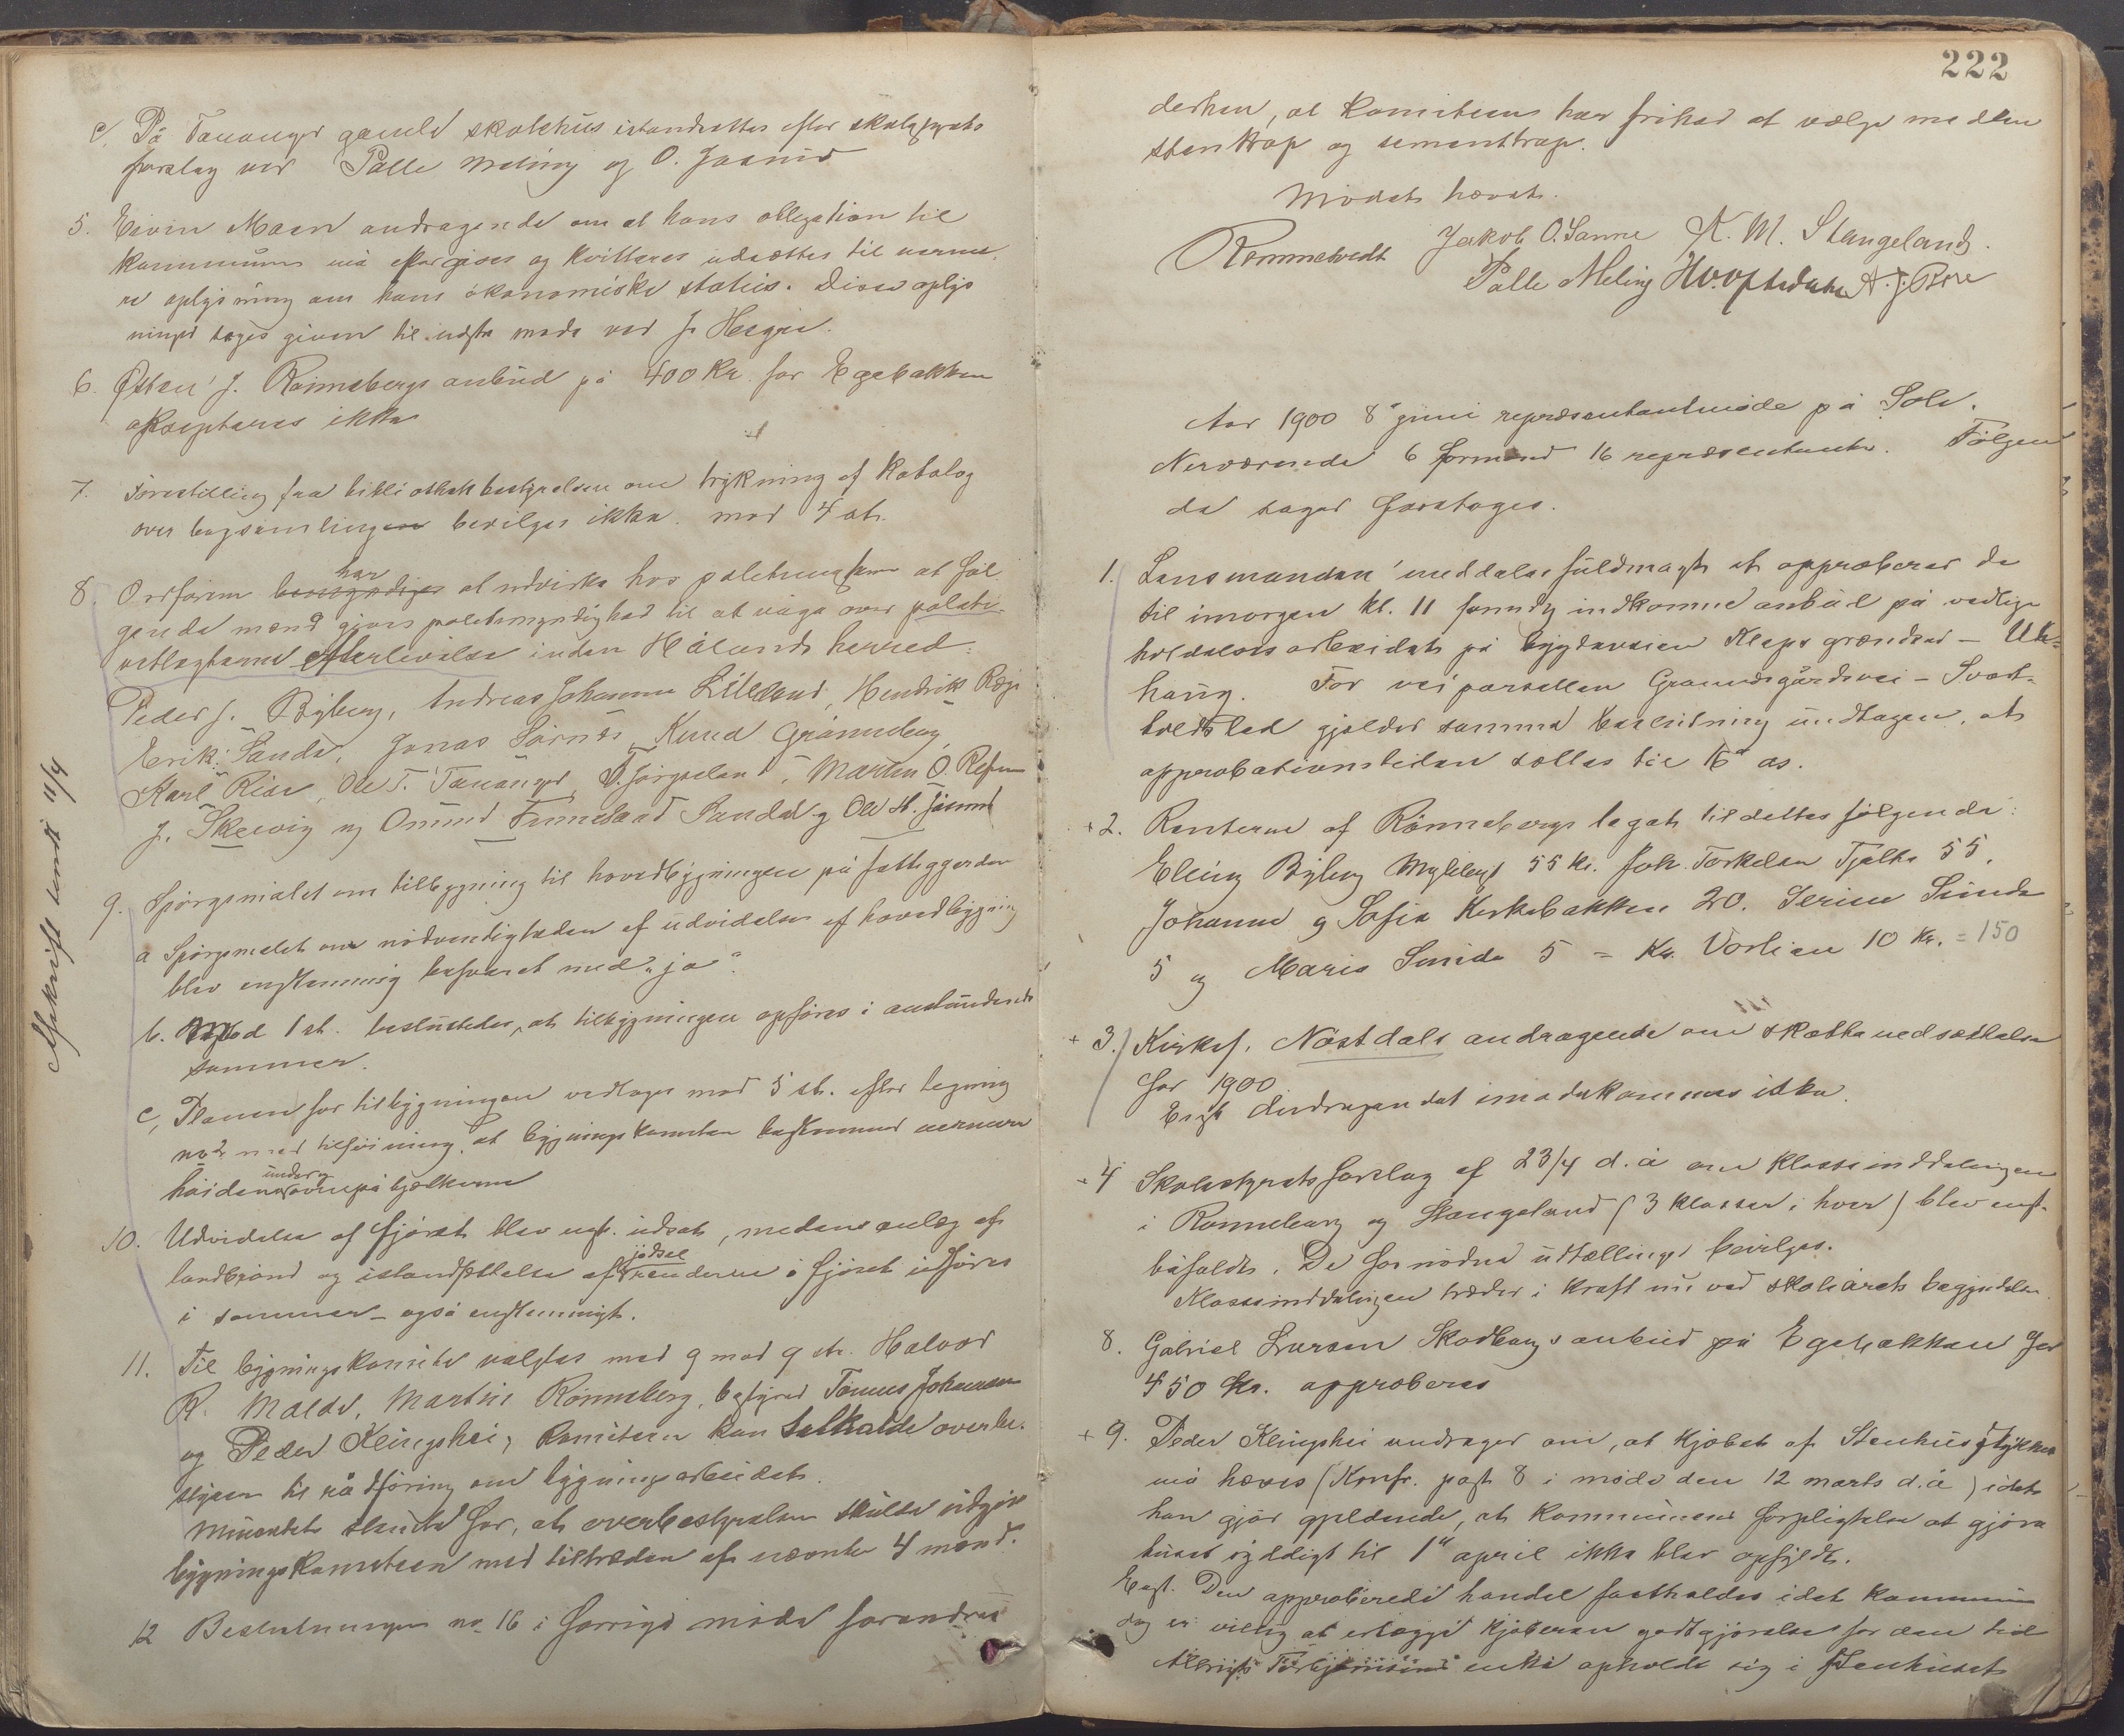 c. På Tananger gamle skolehus istandsættes efter skolestyrets
forslag ved Palle Meling og O. Jåsund
5. Eivin Moen andragende om at hans obligation til
kommunen må eftergives og kvitteres udsættes til nærme-
re oplysning om hans økonomiske status. Disse oplys
ninger søges given til næste møde ved J. Hegre.
6. Østen J. Rønnebergs anbud på 400 Kr. for Egebakken
aksepteres ikke
7. Forestilling fra bibliothekbestyrelsen om trykning af katalog
over bogsamlingen bevilges ikke. mod 4 st.
har
8. Ordføren bemyndiges at udvirke hos politimesteren at føl
gende mænd gives politimyndighed til at våge over politi-
vedtægterne efterlevelse inden Hålands herred:
Peder J. Byberg, Andreas Johannes Lilleland, Hendrik Rege
Erik Sande, Jonas Sørnes, Knud Granneberg,
Karl Risa, Ole T. Tananger, T. Jørgselan, Martin O. Refsnes
J. Skeivig og Omund Sande og Ole H. Jåsund
Afskrift sendt 11/4
9. Spørgsmålet om tilbygning til hovedbygningen på fattiggården
a Spørgsmålet om nødvendigheden af udvidelse af hovedbygning
blev enstemmig besvaret med "ja".
b. Mod 1 st. besluttedes, at tilbygningen opføres i anstundende
sommer.
c, Planen for tilbygningen vedtages mod 5 st. efter tegning
no 2 med tilføining, at bygningskomiteen bestemmer nærmere
under og
høiden ovenpå bjelkerne
10. Udvidelse af fjøset blev enst. udsat, medens anlæg af
jødsel
landbrønd og istandsættelse af renderne i fjøset udføres
i sommer - også enstemmigt.
11. Til bygningskomite valgtes med 9 mod 9 st. Halvor
R. Malde, Martin Rønneberg, bestyrer Tønnes Johannesen
og Peder Klingshei, Komiteen kan tilkalde overbe-
styren til rådføring om bygningsarbeidet.
Minoritet stemte for, at overbestyrelsen skulde udgjøre
bygningskomiteen med tiltræden af nævnte 4 mænd.
12 Beslutningen no 16 i forrige møde forandres
222
derhen, at komiteens har frihed at vælge mellem
stentrap og sementtrap.
Mødet hævet.
Rommetvedt Jakob O. Sømme K. M. Stangeland
Palle Meling H. Opstedum A. J. Risa
Aar 1900 8de juni repræsentantmøde på Sole.
Nærværende 6 formænd 16 repræsentanter. Følgen
de sager foretages.
1. Lensmanden meddeles fuldmagt at approbere de
til imorgen kl. 11 formdg indkomne anbud på vedlige
holdelsesarbeidet på bygdeveien Kleps grændse - Ute-
haug. For veiparsellen Grannesgårdsvei - Svart-
holdstad gjelder samme beslutning undtagen, at
approbationstiden sættes til 16de ds.
2. Renterne af Rønnebergs legat tildeltes følgende:
Eling Byberg Myklebust 55 kr. Joh. Torkelsen Tjelta 55,
Johanne og Sofie Kirkebakken 20. Serine Sunde
5 og Maria Sunde 5 = Kr. Vorlien 10 Kr. = 150
3. Kirkes. Nøstdals andragende om skattenedsættelse
for 1900
Enst Andragendet imødekommes ikke.
4 Skolestyrets forslag af 23/4 d.å om klasseinddelingen
i Rønneberg og Stangeland (3 klasser i hver) blev enst.
bifaldt. De fornødne udtællinger bevilges.
Klasseinddelingen træder i kraft nu ved skoleårets begyndelse.
8. Gabriel Larsen Skadbergs anbud på Egebakken for
450 Kr. approberes
9. Peder Klingshei andrager om, at kjøbet af Stenhusstykket
må hæves (Konfr. post 8 i møde den 12 marts d.å) idet
han gjør gjeldende, at kommunens forpligtelse at gjøre
huset ryddigt til 1ste april ikke blev opfyldt.
Enst. Den approberede handel fastholdes idet kommunen
dog er villig at erlægge kjøberen godtgjørelse for den tid
enke opholdt sig i Stenhuset